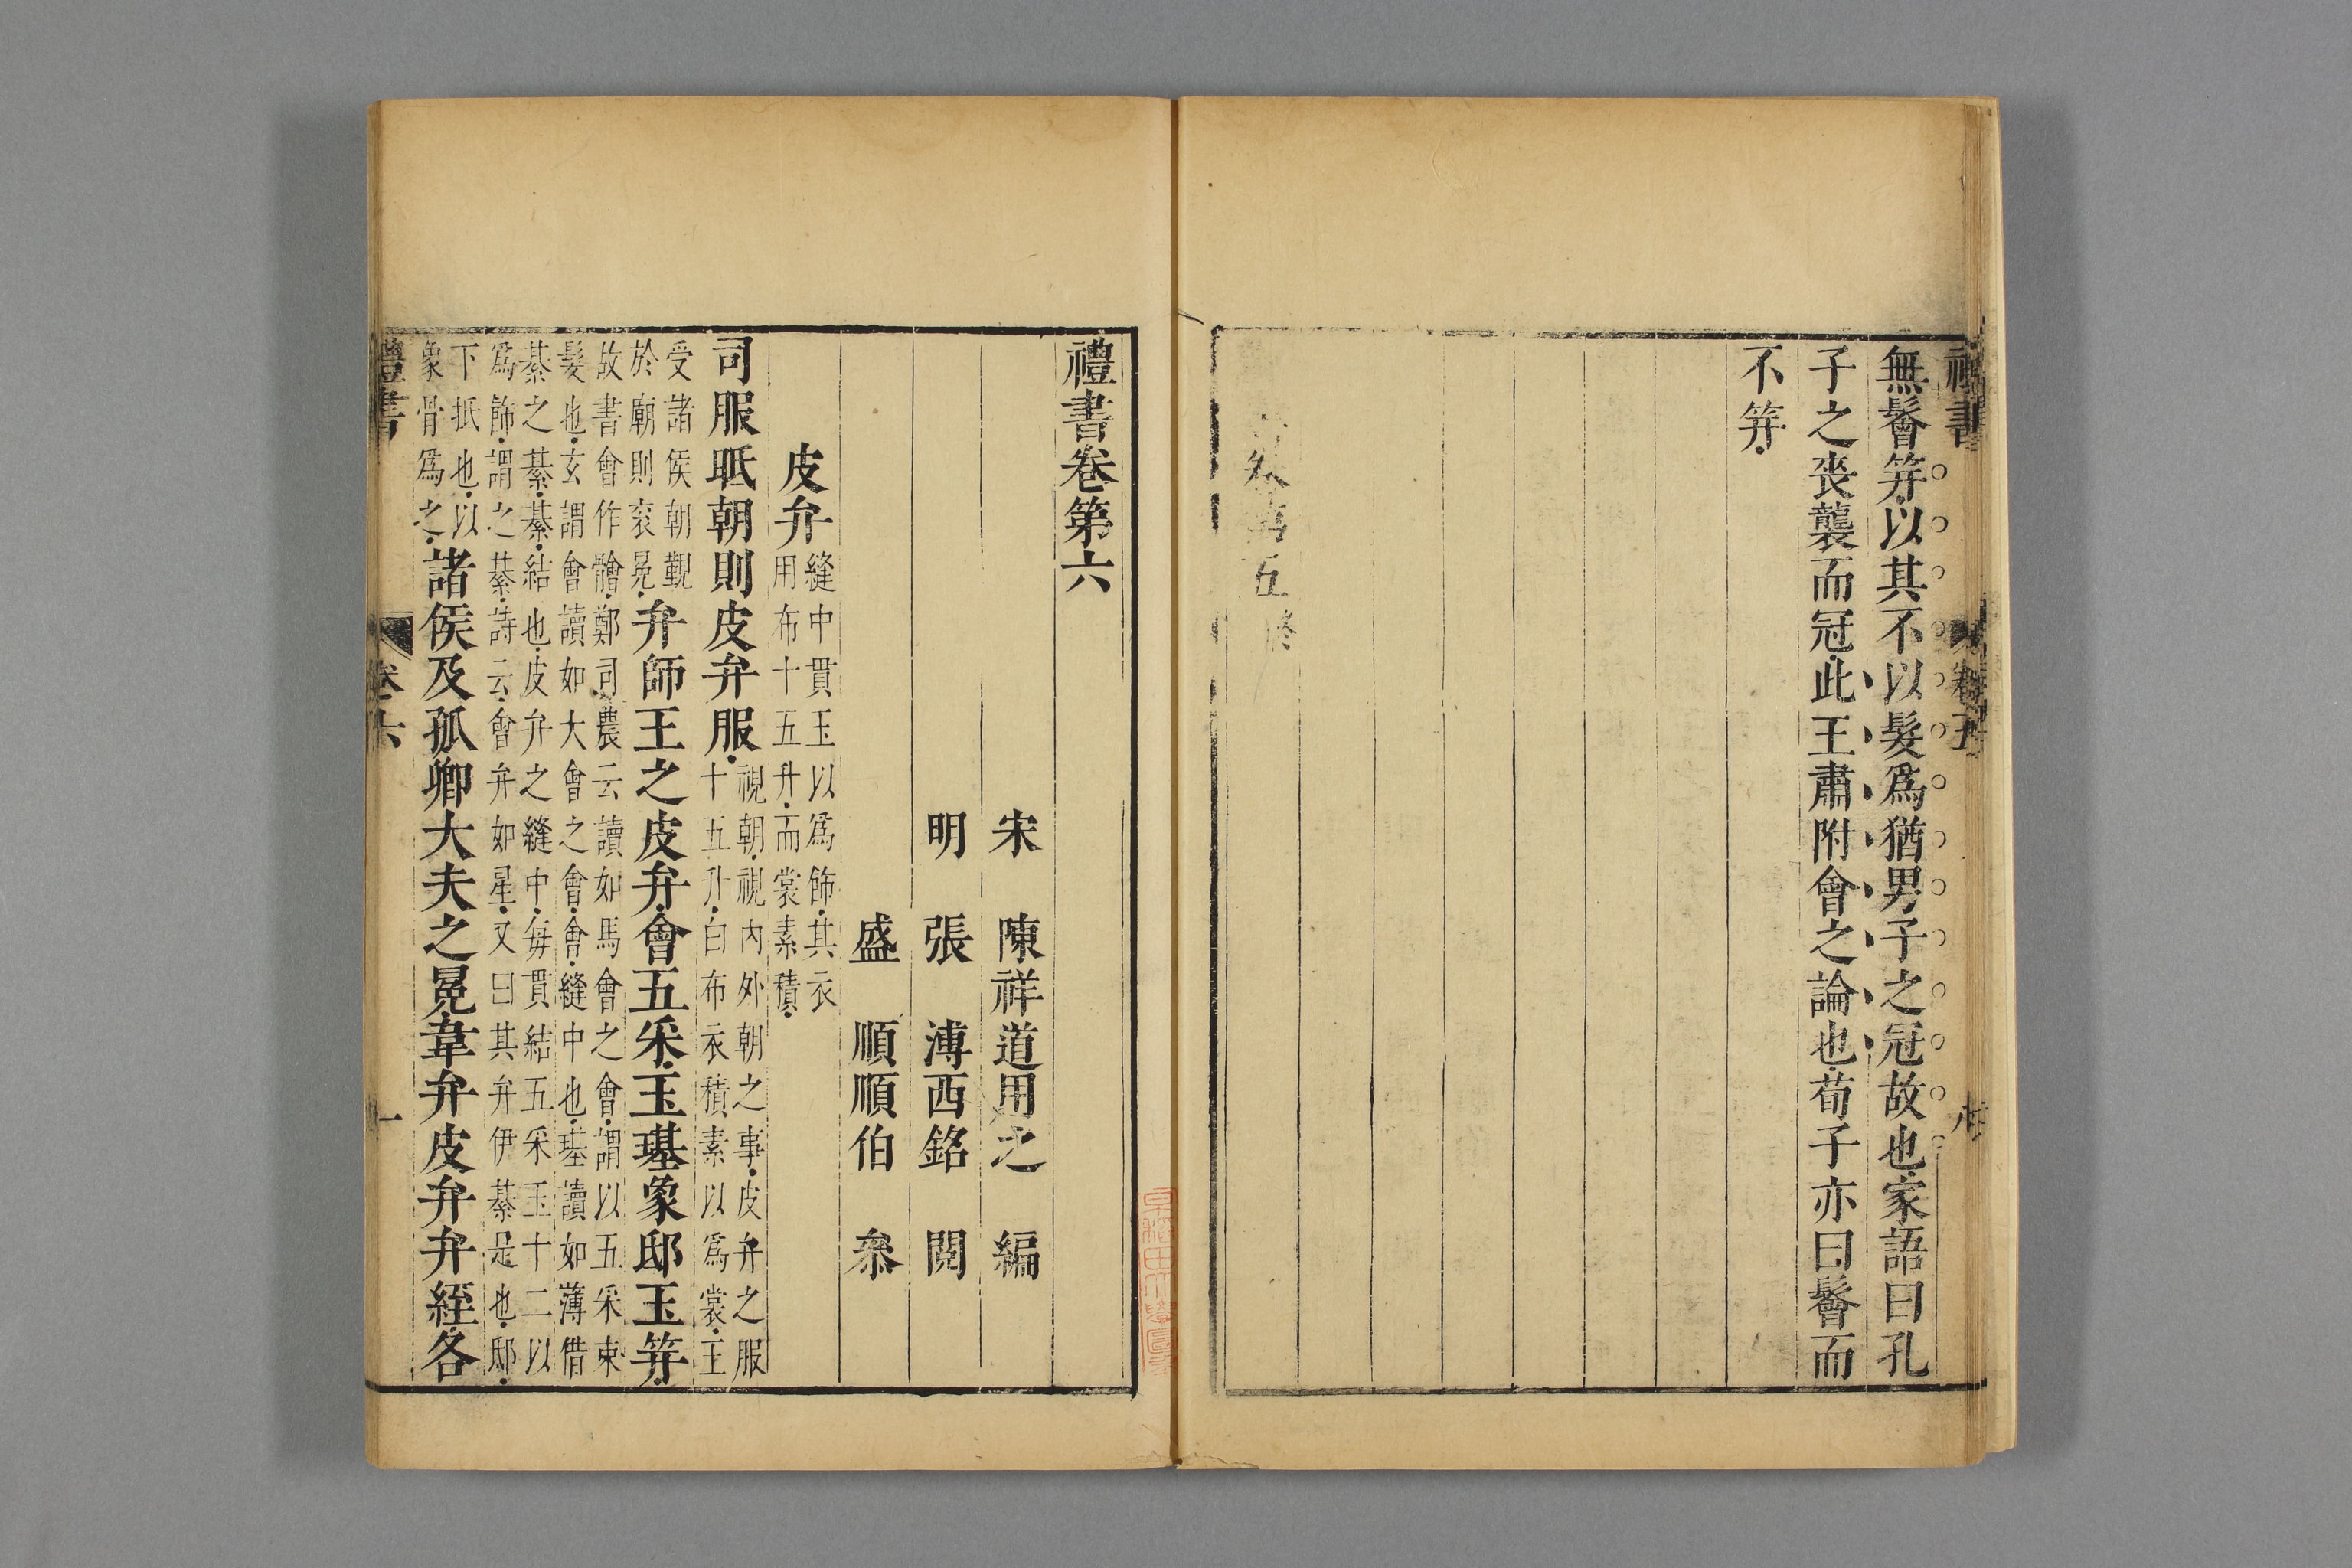 無鬠笄以其不以髮爲猶男子之冠故也家語曰孔
子之喪襲而冠此王肅附會之論也荀子亦曰鬠而
不笄
禮書卷第六
宋 陳祥道用之 編
明 張 溥西銘 閱
盛 順順伯 叅
皮弁縫中貫玉以爲飾其衣
用布十五升而裳素積
司服眡朝則皮弁服視朝視内外朝之事皮弁之服
十五升白布衣積素以爲裳王
受諸侯朝覲
於廟則衮冕弁師王之皮弁會五采玉璂象邸玉笄
故書會作䯤鄭司農云讀如馬會之會謂以五采束
髮也玄謂會讀如大會之會會縫中也璂讀如薄借
綦之綦綦結也皮弁之縫中每貫結五采玉十二以
爲飾謂之綦詩云會弁如星又曰其弁伊綦是也邸
下抵也以
象骨爲之諸侯及孤卿大夫之冕韋弁皮弁弁絰各
禮書 卷六 一